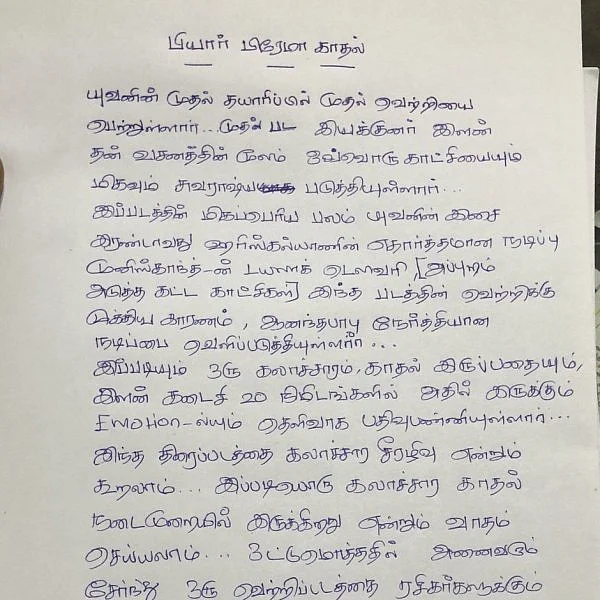 பியார் பிரேமா காதல்
யுவனின் முதல் தயாரிப்பில் முதல் வெற்றியை
பெற்றுள்ளார்... முதல் பட இயக்குனர் இளன்
தன் வசனத்தின் மூலம் ஒவ்வொரு காட்சியையும்
மிகவும் சுவராஷ்ய படுத்தியுள்ளார்...
இப்படத்தின் மிகப்பெரிய பலம் யுவனின் இசை
இரண்டாவது ஹரிஸ்கல்யாணின் எதார்த்தமான நடிப்பு
முனிஸ்காந்த்-ன் டயலாக் டெலவரி, [அப்புறம்
அடுத்த கட்ட காட்சிகள்] இந்த படத்தின் வெற்றிக்கு
முக்கிய காரணம், ஆனந்தபாபு நேர்த்தியான
நடிப்பை வெளிப்படுத்தியுள்ளார்...
இப்படியும் ஒரு கலாச்சாரம், காதல் இருப்பதையும்,
இளன் கடைசி 20 நிமிடங்களில் அதில் இருக்கும்
Emotion-ஸ்யும் தெளிவாக பதிவுபண்ணியுள்ளார்...
இந்த திரைப்படத்தை கலாச்சார சீரழிவு என்றும்
கூறலாம்... இப்படியொரு கலாச்சார காதல்
நடைமுறையில் இருக்கிறது என்றும் வாதம்
செய்யலாம்... ஒட்டுமொத்தத்தில் அனைவரும்
சேர்ந்து ஒரு வெற்றிப்படத்தை ரசிகர்களுக்கும்